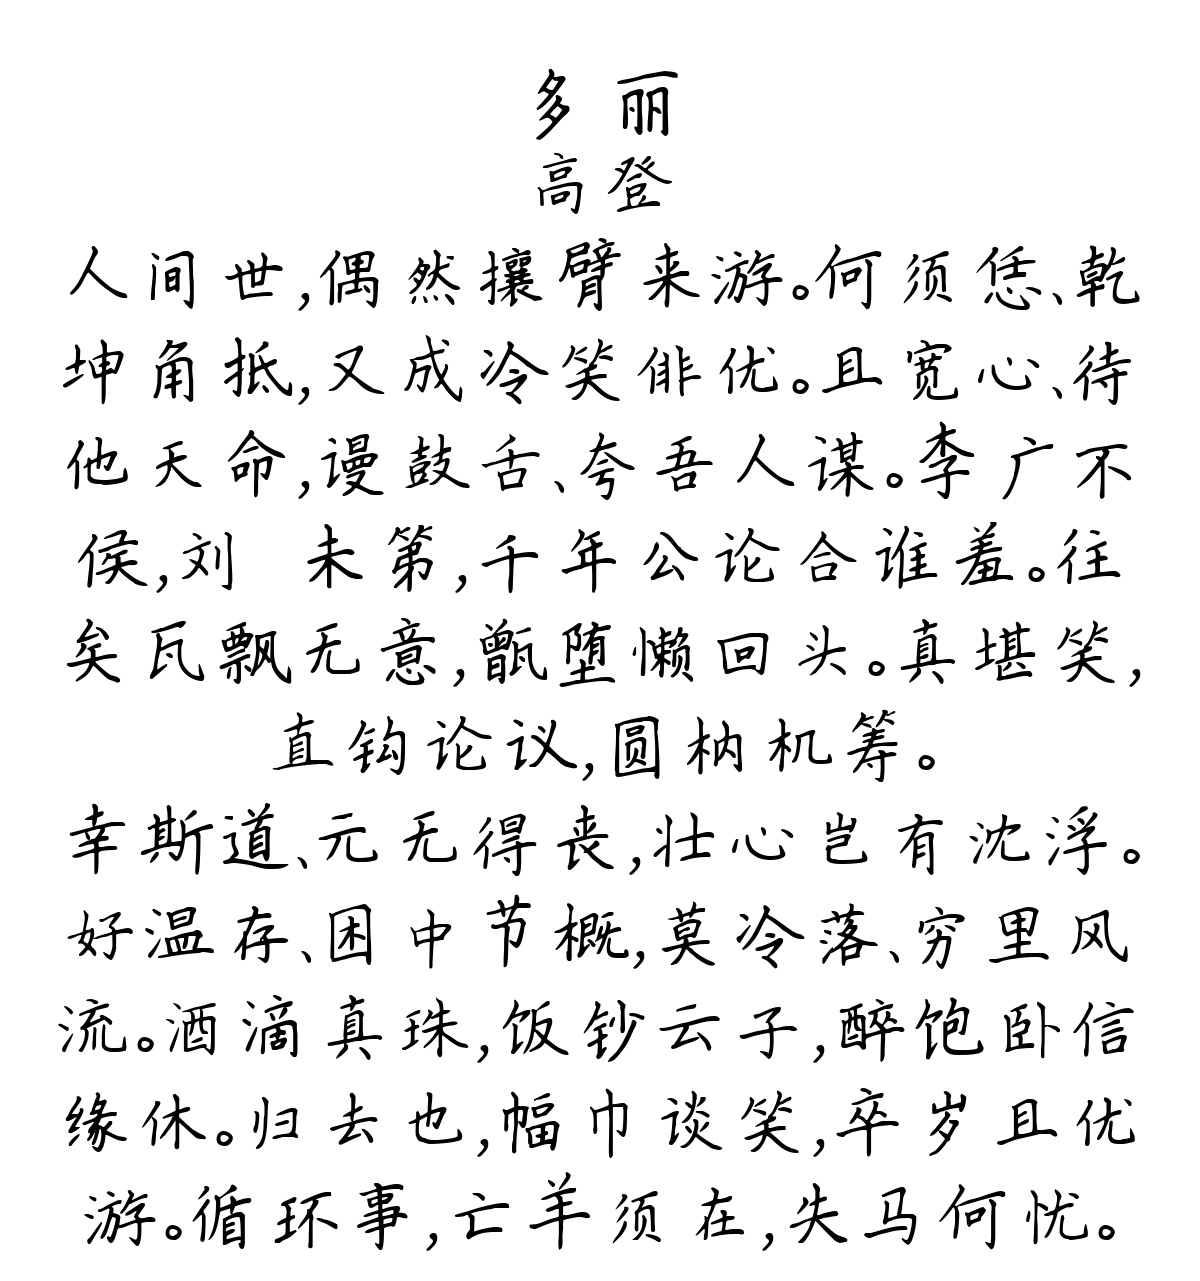 多丽
高登
人间世,偶然攘臂来游。何须恁、乾
坤角抵,又成冷笑俳优。且宽心、待
他天命,谩鼓舌、夸吾人谋。李广不
侯,刘 未第,千年公论合谁羞。往
矣瓦飘无意,甑堕懒回头。真堪笑,
直钩论议,圆枘机筹。
幸斯道、元无得丧,壮心岂有沈浮。
好温存、困中节概,莫冷落、穷里风
流。酒滴真珠,饭钞云子,醉饱卧信
缘休。归去也,幅巾谈笑,卒岁且优
游。循环事,亡羊须在,失马何忧。